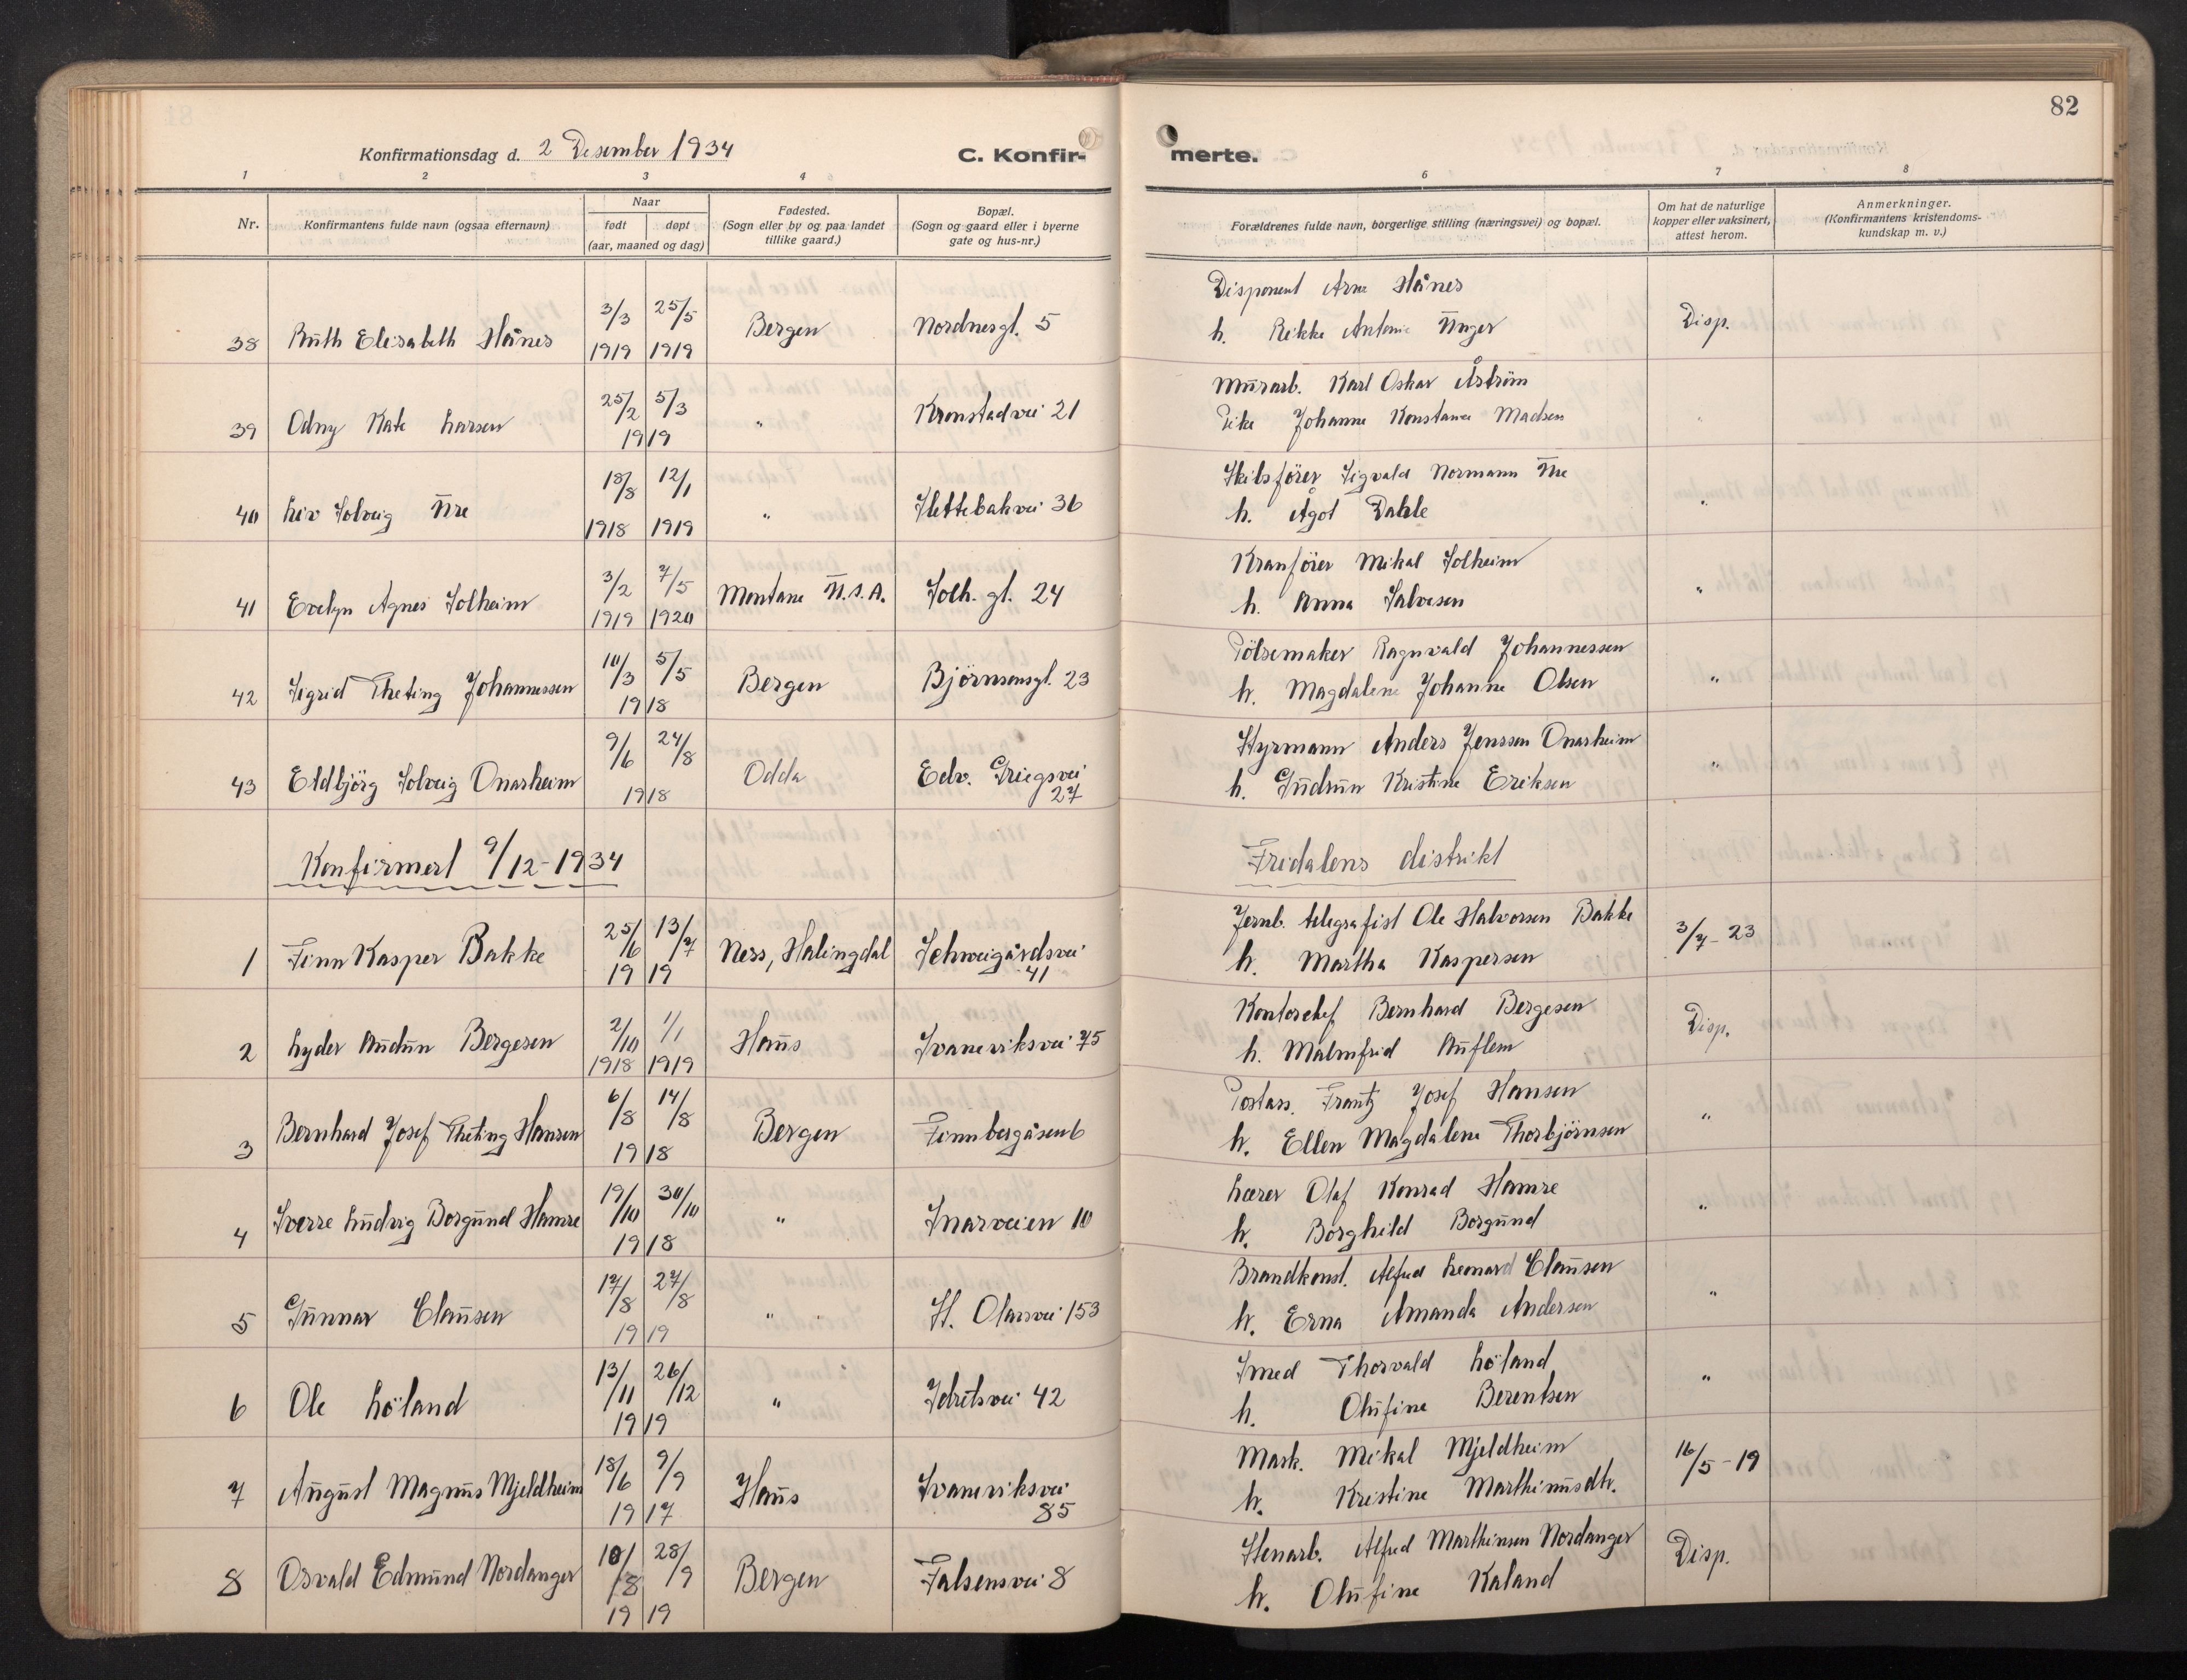 82
Konfirmationsdag d. 2 Desember 1934
C. Konfir-
merte.
1 2 3 4 6 7 8
Nr.
Konfirmantens fulde navn (ogsaa efternavn)
Naar
født døpt
(aar, maaned og dag)
Fødested.
(Sogn eller by og paa landet
tillike gaard.)
Bopæl.
(Sogn og gaard eller i byerne
gate og hus-nr.)
Forældrenes fulde navn, borgerlige stilling (næringsvei) og bopæl.
Om hat de naturlige
kopper eller vaksinert,
attest herom.
Anmerkninger.
(Konfirmantens kristendoms-
kundskap m. v.)
Disponent Arne Hånes
38 Ruth Elisabeth Hånes 3/3 1919 25/5 1919 Bergen Nordnesgt. 5
h. Rikke Antonie Unger Disp.
Murarb. Karl Oskar Åström
39 Odny Kate Larsen 25/2 5/3 1919 " Kronstadvei 21
Pike Johanne Konstance Madsen "
Skibsförer Sigvald Normann Ure
40 Liv Solveig Ure 18/8 1918 12/1 1919 " Slettebakvei 36
h. Ågot Dahle "
Kranförer Mikal Solheim
41 Evelyn Agnes Solheim 3/2 1919 7/5 1920 Montana U.S.A. Solh. gt. 24
h. Anna Salvesen "
Pölsemaker Ragnvald Johannessen
42 Sigrid Theting Johannessen 10/3 5/5 1918 Bergen Björnsonsgt. 23
h. Magdalene Johanne Olsen "
Styrmann Anders Jenssen Onarheim
43 Eldbjörg Solveig Onarheim 9/6 24/8 1918 Odda Edv. Griegsvei 27
h. Gudrun Kristine Eriksen "
Konfirmert 9/12-1934
Fridalens distrikt
Jernb. telegrafist Ole Halvorsen Bakke
1 Finn Kasper Bakke 25/6 13/7 1919 Ness, Halingdal Schweigårdsvei 41
h. Martha Kaspersen 3/7-23
Kontorchef Bernhard Bergesen
2 Lyder Audun Bergesen 2/10 1918 1/1 1919 Haus Svaneviksvei 75
h. Malmfrid Auflem Disp.
Postass. Frantz Josef Hansen
3 Bernhard Josef Theting Hansen 6/8 14/8 1918 Bergen Finnbergåsen 6
h. Ellen Magdalene Thorbjörnsen "
Lærer Olaf Konrad Hamre
4 Sverre Ludvig Borgund Hamre 19/10 30/10 1918 " Snarveien 10
h. Borghild Borgund "
Brandkonst. Alfred Leonard Clausen
5 Gunnar Clausen 17/8 27/8 1919 " " St. Olavsvei 153
h. Erna Amanda Andersen "
Smed Thorvald Löland
6 Ole Löland 13/11 26/12 1919 " Idretsvei 42
h. Olufine Berentsen "
Mask. Mikal Mjeldheim
7 August Magnus Mjeldheim 18/6 9/9 1917 Haus Svaneviksvei 85
h. Kristine Marthinusdtr. 16/5-19
Stenarb. Alfred Marthinsen Nordanger
8 Osvald Edmund Nordanger 10/8 28/9 1919 Bergen Falsensvei 8
h. Olufine Kaland Disp.